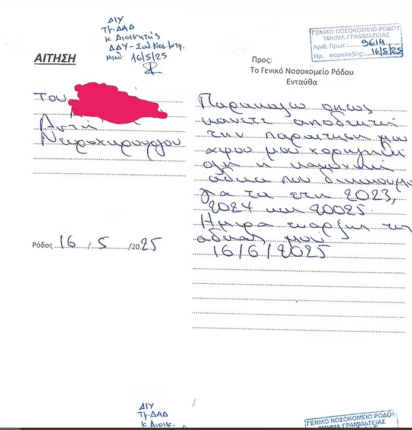 ΔΙΥ
ΤΜ ΔΑΔ
κ Διοικητής
16/5/25
ΓΕΝΙΚΟ ΝΟΣΟΚΟΜΕΙΟ ΡΟΔΟΥ
ΤΜΗΜΑ ΓΡΑΜΜΑΤΕΙΑΣ
Αριθ. Πρωτ.: 9614
Ημ. παραλαβής: 16/5/25
ΑΙΤΗΣΗ
Προς:
Το Γενικό Νοσοκομείο Ρόδου
Ενταύθα
Του
Νευροχειρουργου
Παρακαλώ όπως
κάνετε αποδεκτή
την παραίτησή μου
αφού μου χορηγηθεί
όλη η κανονική
άδεια που δικαιούμαι
για τα έτη 2023,
2024 και 20025.
Ημέρα έναρξης της
άδειας μου
16/6/2025
Ρόδος 16 / 5 /2025
ΔΙΥ
ΤΜ ΔΑΔ
κ Διοικ.
ΓΕΝΙΚΟ ΝΟΣΟΚΟΜΕΙΟ ΡΟΔΟΥ
ΤΜΗΜΑ ΓΡΑΜΜΑΤΕΙΑΣ